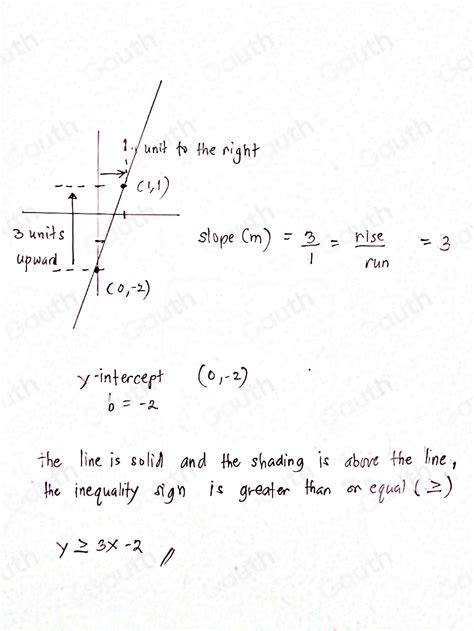 1 unit to the right
(1,1)
3 units
upward
slope (m) = 3/1 = rise/run = 3
(0,-2)
y-intercept (0,-2)
b = -2
the line is solid and the shading is above the line,
the inequality sign is greater than or equal (≥)
y ≥ 3x -2
Gauth